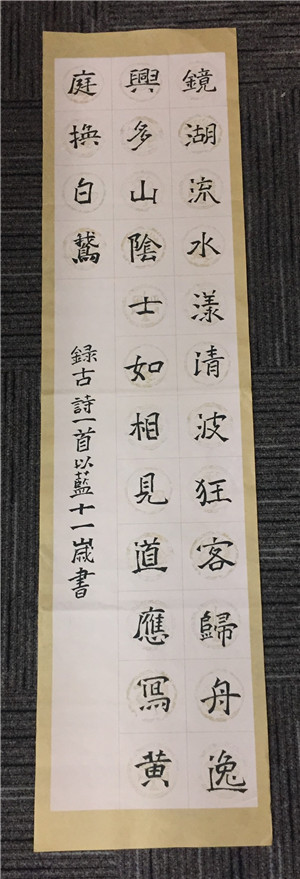 鏡湖流水漾清波狂客歸舟逸
興多山陰士如相見道應寫黄
庭換白鵞
録古詩一首以藍十一歲書